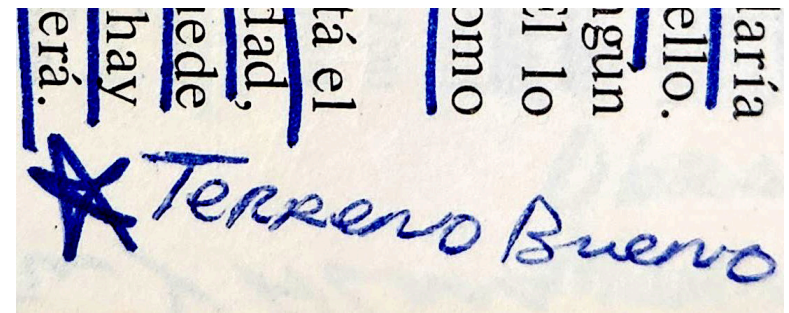 aría
ello.
ngún
l lo
omo
tá el
dad,
uede
hay
erá.
Terreno Bueno